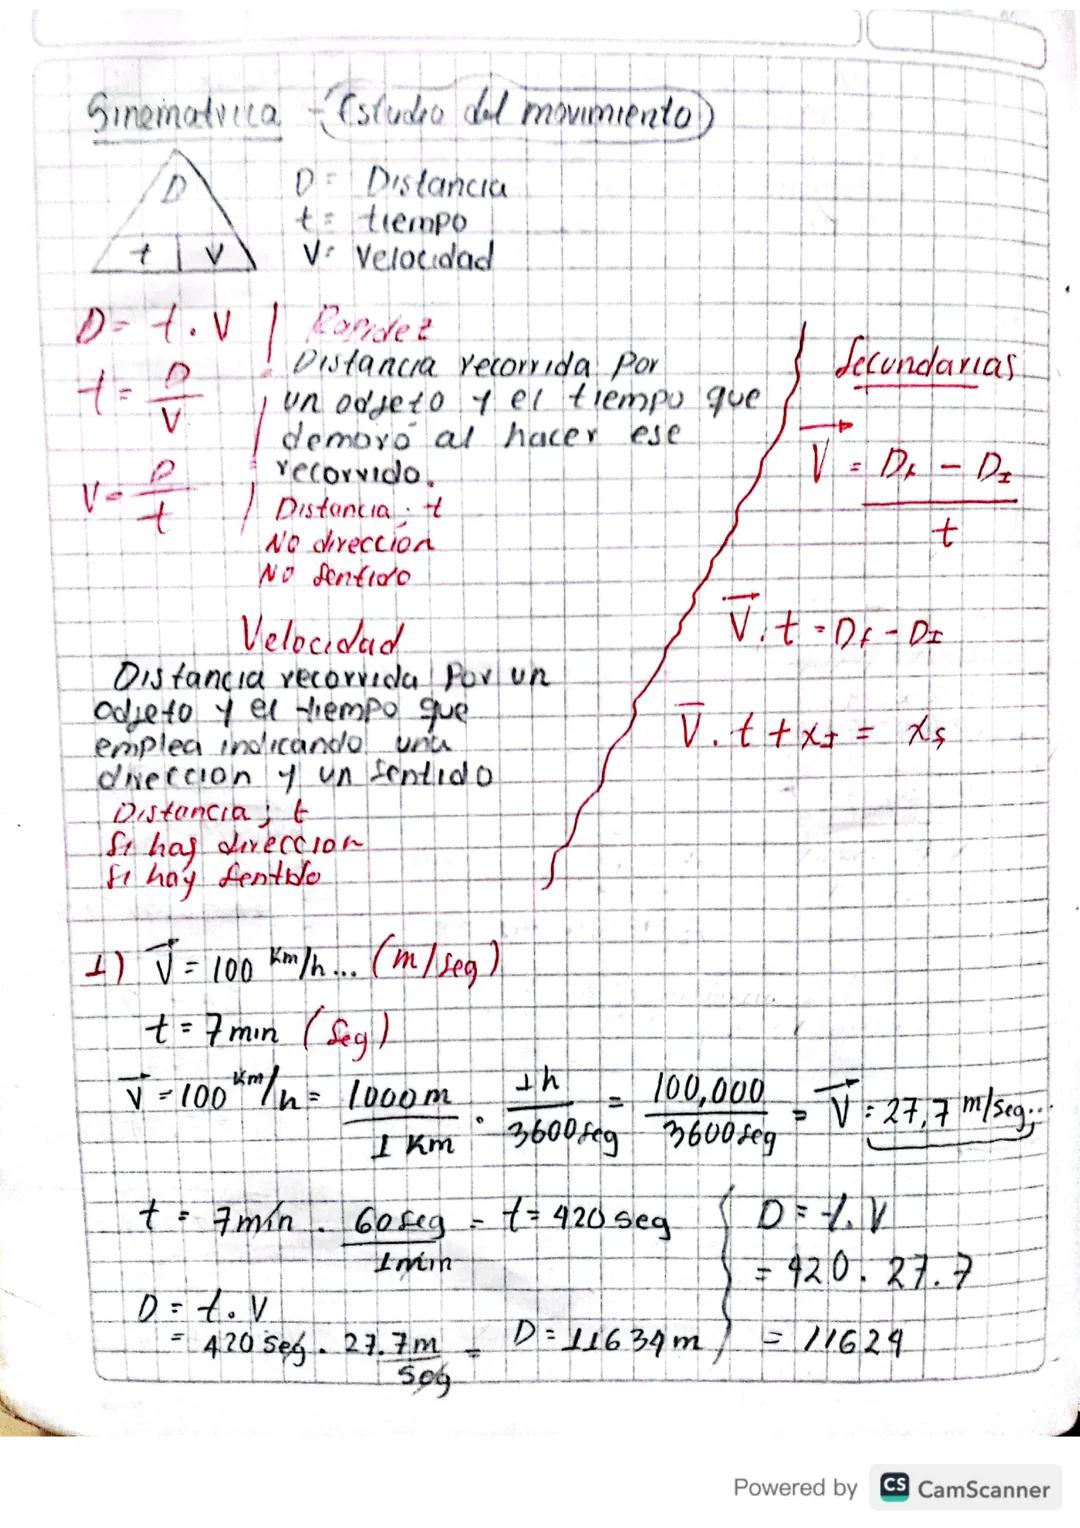 Sinematica - (Estudio del movimiento)
D
t | V
D = Distancia
t = tiempo
V = Velocidad
D = t . V
t = D
V
V = D
t
Rapidez
Distancia recorrida por
un odjeto y el tiempo que
demoró al hacer ese
recorrido.
Distancia ; t
NO dirección
NO Sentido
Velocidad
Distancia recorrida por un
odjeto y el tiempo que
emplea indicando una
direccion y un sentido
Distancia ; t
Si hay direccion
Si hay Sentido
Secundarias
V = Df - DI
t
V . t = Df - DI
V . t + xI = xf
1) V = 100 Km/h ... (m/seg)
t = 7 min (Seg)
V = 100 Km/h = 1000 m / 1 Km . 1h / 3600 seg = 100,000 / 3600 seg = V = 27,7 m/seg
t = 7 min . 60 seg / 1 min = t = 420 seg
D = t . V
= 420 seg . 27.7 m / seg = D = 11634 m
D = t . V
= 420 . 27.7
= 11624
Powered by CS CamScanner